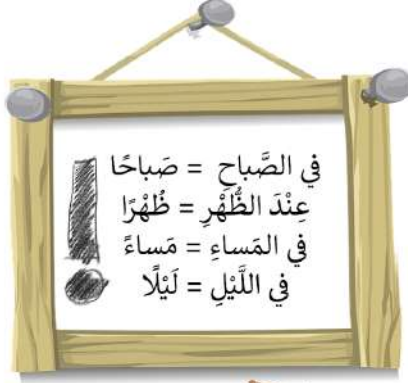 في الصَّباحِ = صَباحًا
عِنْدَ الظُّهْرِ = ظُهْرًا
في المَساءِ = مَساءً
في اللَّيْلِ = لَيْلًا
!